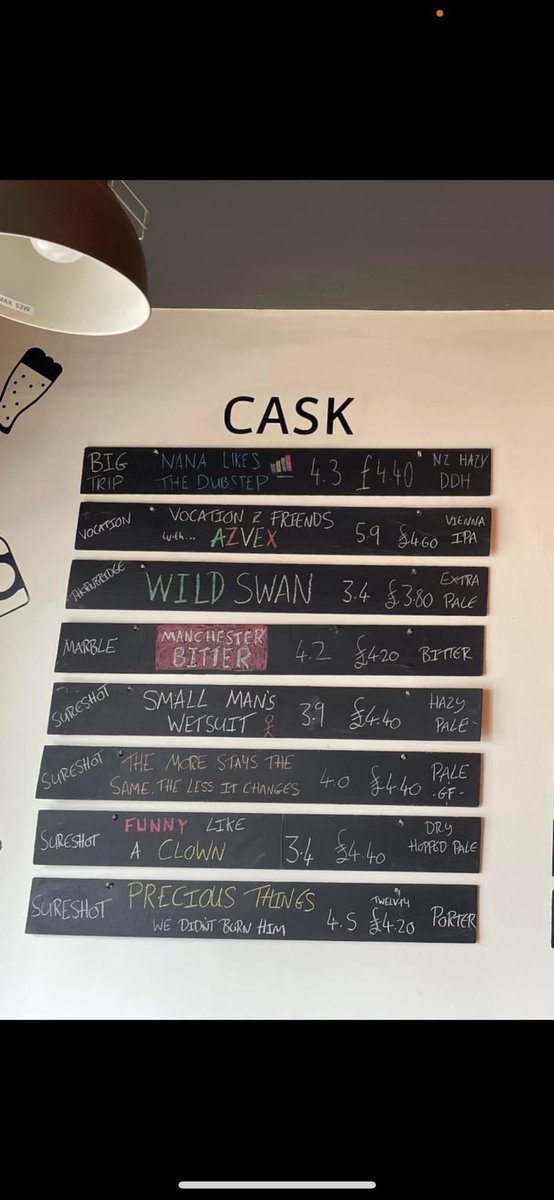 MAX 53W
CASK
BIG TRIP NANA LIKES THE DUBSTEP 4.3 £4.40 NZ HAZY DDH
VOCATION VOCATION & FRIENDS with... AZVEX 5.9 £4.60 VIENNA IPA
THORNBRIDGE WILD SWAN 3.4 £3.80 EXTRA PALE
MARBLE MANCHESTER BITTER 4.2 £4.20 BITTER
SURESHOT SMALL MAN'S WETSUIT 3.9 £4.40 HAZY PALE
SURESHOT THE MORE STAYS THE SAME. THE LESS IT CHANGES 4.0 £4.40 PALE -GF-
SURESHOT FUNNY LIKE A CLOWN 3.4 £4.40 DRY HOPPED PALE
SURESHOT PRECIOUS THINGS WE DIDN'T BURN HIM 4.5 £4.20 PORTER